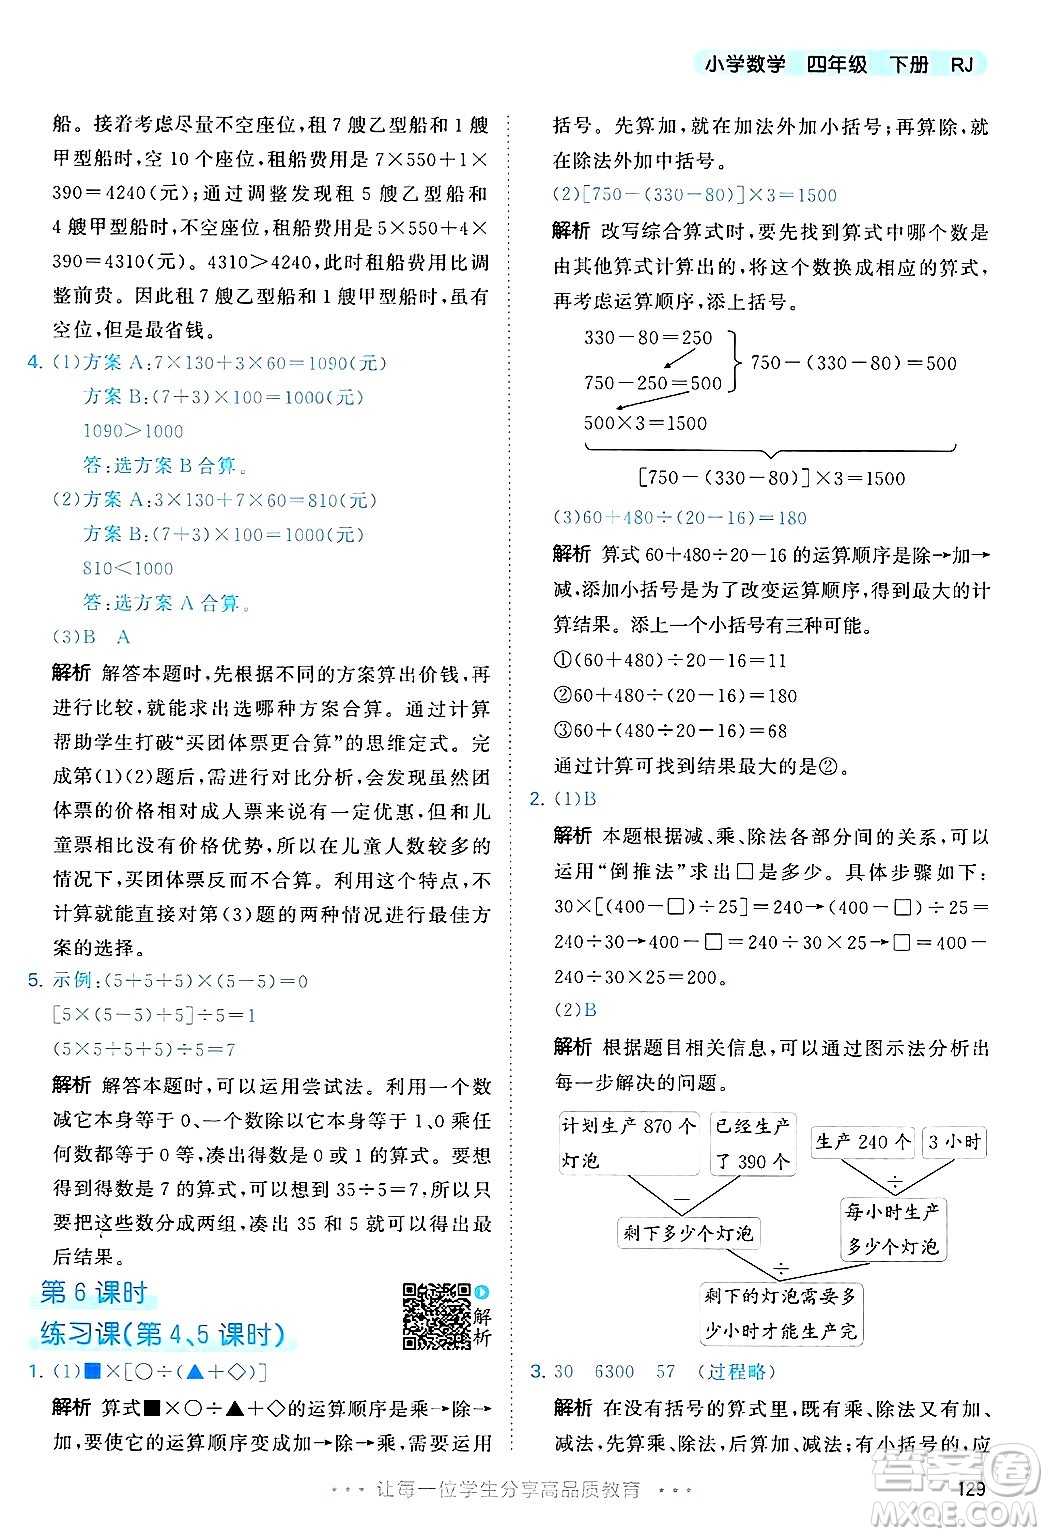 小学数学 四年级 下册 RJ
船。接着考虑尽量不空座位,租7艘乙型船和1艘
甲型船时,空10个座位,租船费用为7×550+1×
390=4240(元);通过调整发现租5艘乙型船和
4艘甲型船时,不空座位,租船费用为5×550+4×
390=4310(元)。4310>4240,此时租船费用比调
整前贵。因此租7艘乙型船和1艘甲型船时,虽有
空位,但是最省钱。
4. (1)方案A:7×130+3×60=1090(元)
方案B:(7+3)×100=1000(元)
1090>1000
答:选方案B合算。
(2)方案A:3×130+7×60=810(元)
方案B:(7+3)×100=1000(元)
810<1000
答:选方案A合算。
(3)B A
解析 解答本题时,先根据不同的方案算出价钱,再
进行比较,就能求出选哪种方案合算。通过计算
帮助学生打破“买团体票更合算”的思维定式。完
成第(1)(2)题后,需进行对比分析,会发现虽然团
体票的价格相对成人票有一定优惠,但和儿
童票对比没有价格优势。所以在儿童人数较多的
情况下,买团体票反而不合算。利用这个特点,不
计算就能直接对第(3)题的两种情况进行最佳方
案的选择。
5. 示例:(5+5+5)×(5-5)=0
[5×(5-5)+5]÷5=1
(5×5+5+5)÷5=7
解析 解答本题时,可以运用尝试法。利用一个数
减它本身等于0、一个数除以它本身等于1、0乘任
何数都等于0等,凑出得数是0或1的算式。要想
得到得数是7的算式,可以联想到35÷5=7,所以只
要把这些数分成两组,凑出35和5就可以得出最
后结果。
第6课时
练习课(第4、5课时)
解析
1. (1)■×[○÷(▲+◇)]
解析 算式■×○÷▲+◇的运算顺序是乘→除→
加,要使它的运算顺序变成加→除→乘,需要用
括号。先算加,就在加法外加小括号;再算除,就
在除法外加中括号。
(2)[750-(330-80)]×3=1500
解析 改写综合算式时,要先找到算式中哪个数是
由其他算式计算出的,将这个数换成相应的算式,
再考虑运算顺序,添上括号。
330-80=250
750-250=500
750-(330-80)=500
500×3=1500
[750-(330-80)]×3=1500
(3)60+480÷(20-16)=180
解析 算式60+480÷20-16的运算顺序是除→加→
减,添加小括号是为了改变运算顺序,得到最大的计
算结果。添上一个小括号有三种可能。
①(60+480)÷20-16=11
②60+480÷(20-16)=180
③(60+480÷20)-16=68
通过计算可找到结果最大的是②。
2. (1)B
解析 本题根据减、乘、除法各部分间的关系,可以
运用“倒推法”求出□是多少。具体步骤如下:
30×[(400-□)÷25]=240→(400-□)÷25=
240÷30→400-□=240÷30×25→□=400-
240÷30×25=200。
(2)B
解析 根据题目相关信息,可以通过图示法分析出
每一步解决的问题。
计划生产870个
灯泡
已经生产
了390个
生产240个
3小时
－
÷
剩下多少个灯泡
每小时生产
多少个灯泡
÷
剩下的灯泡需要多
少小时才能生产完
3. 30 6300 57 (过程略)
解析 在没有括号的算式里,既有乘、除法又有加、
减法,先算乘、除法,后算加、减法;有小括号的,应
让每一位学生分享高品质教育
129
答案卷
MXQE.COM